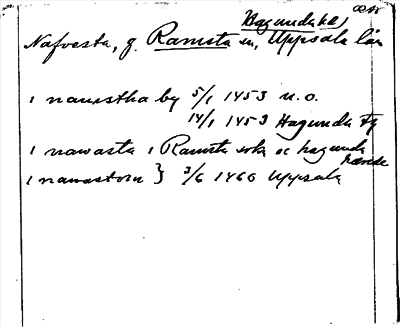 Hagunda hd
Nafvesta, g. Ramsta sn, Uppsala län
i nauastha by 5/1 1453 u.o.
14/1 1453 Hagunda
i nawasta i Ramsta sokn oc hagunda
hærede
i nauastom } 3/6 1460 Uppsala